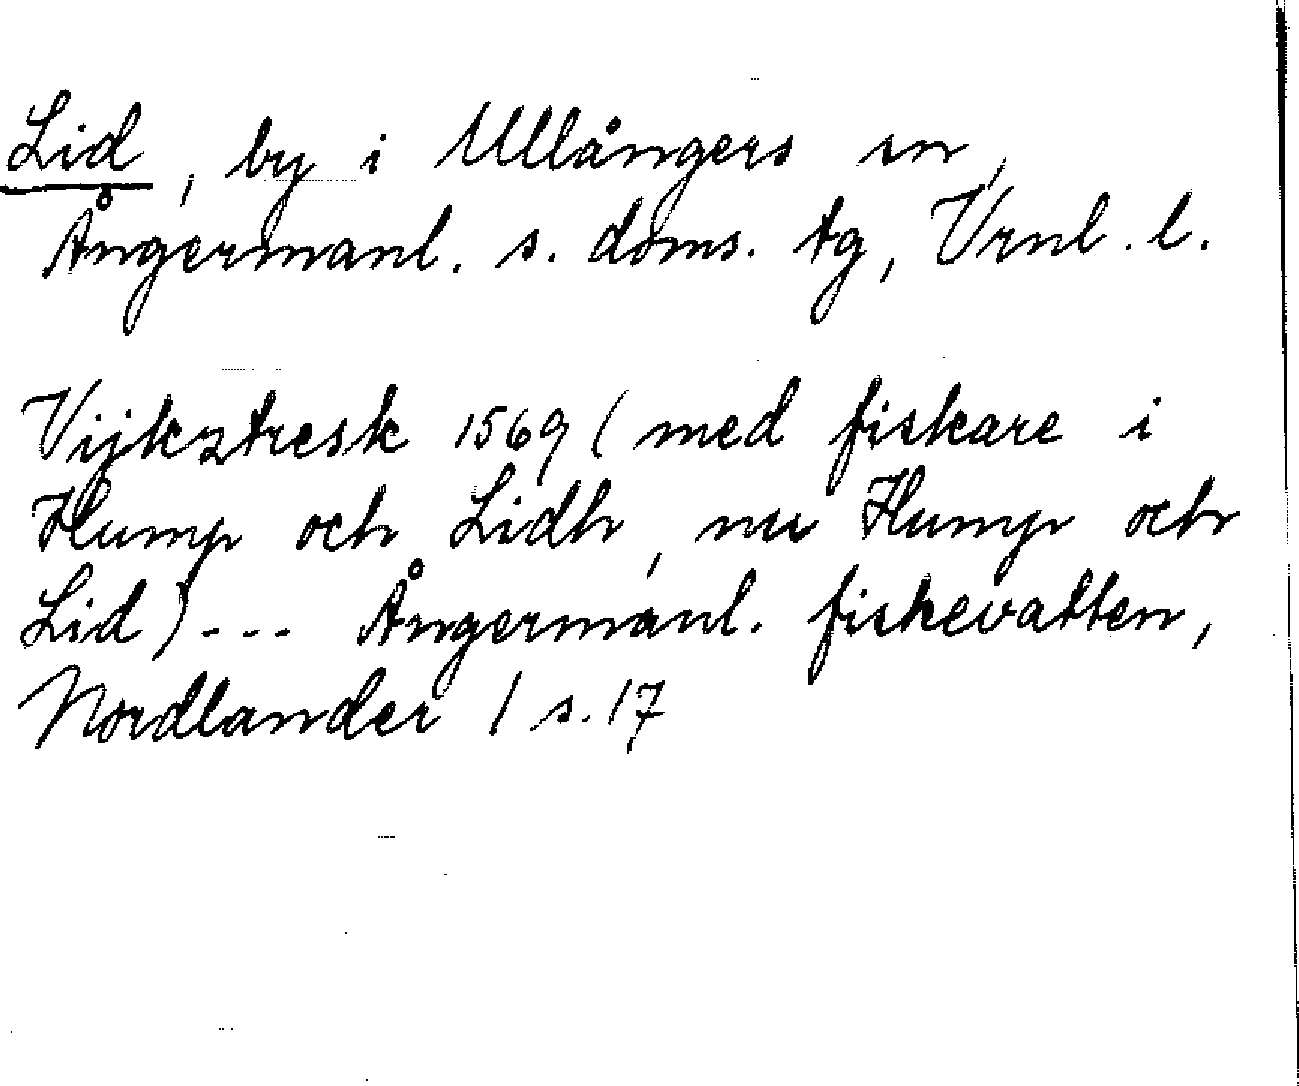 Lid, by i Ullångers sn,
Ångermanl. s. doms. tg, Vrnl. l.
Vijkztresk 1569 (med fiskare i
Hump och Lidh, nu Hump och
Lid) --- Ångermanl. fiskevatten,
Nordlander 1 s. 17